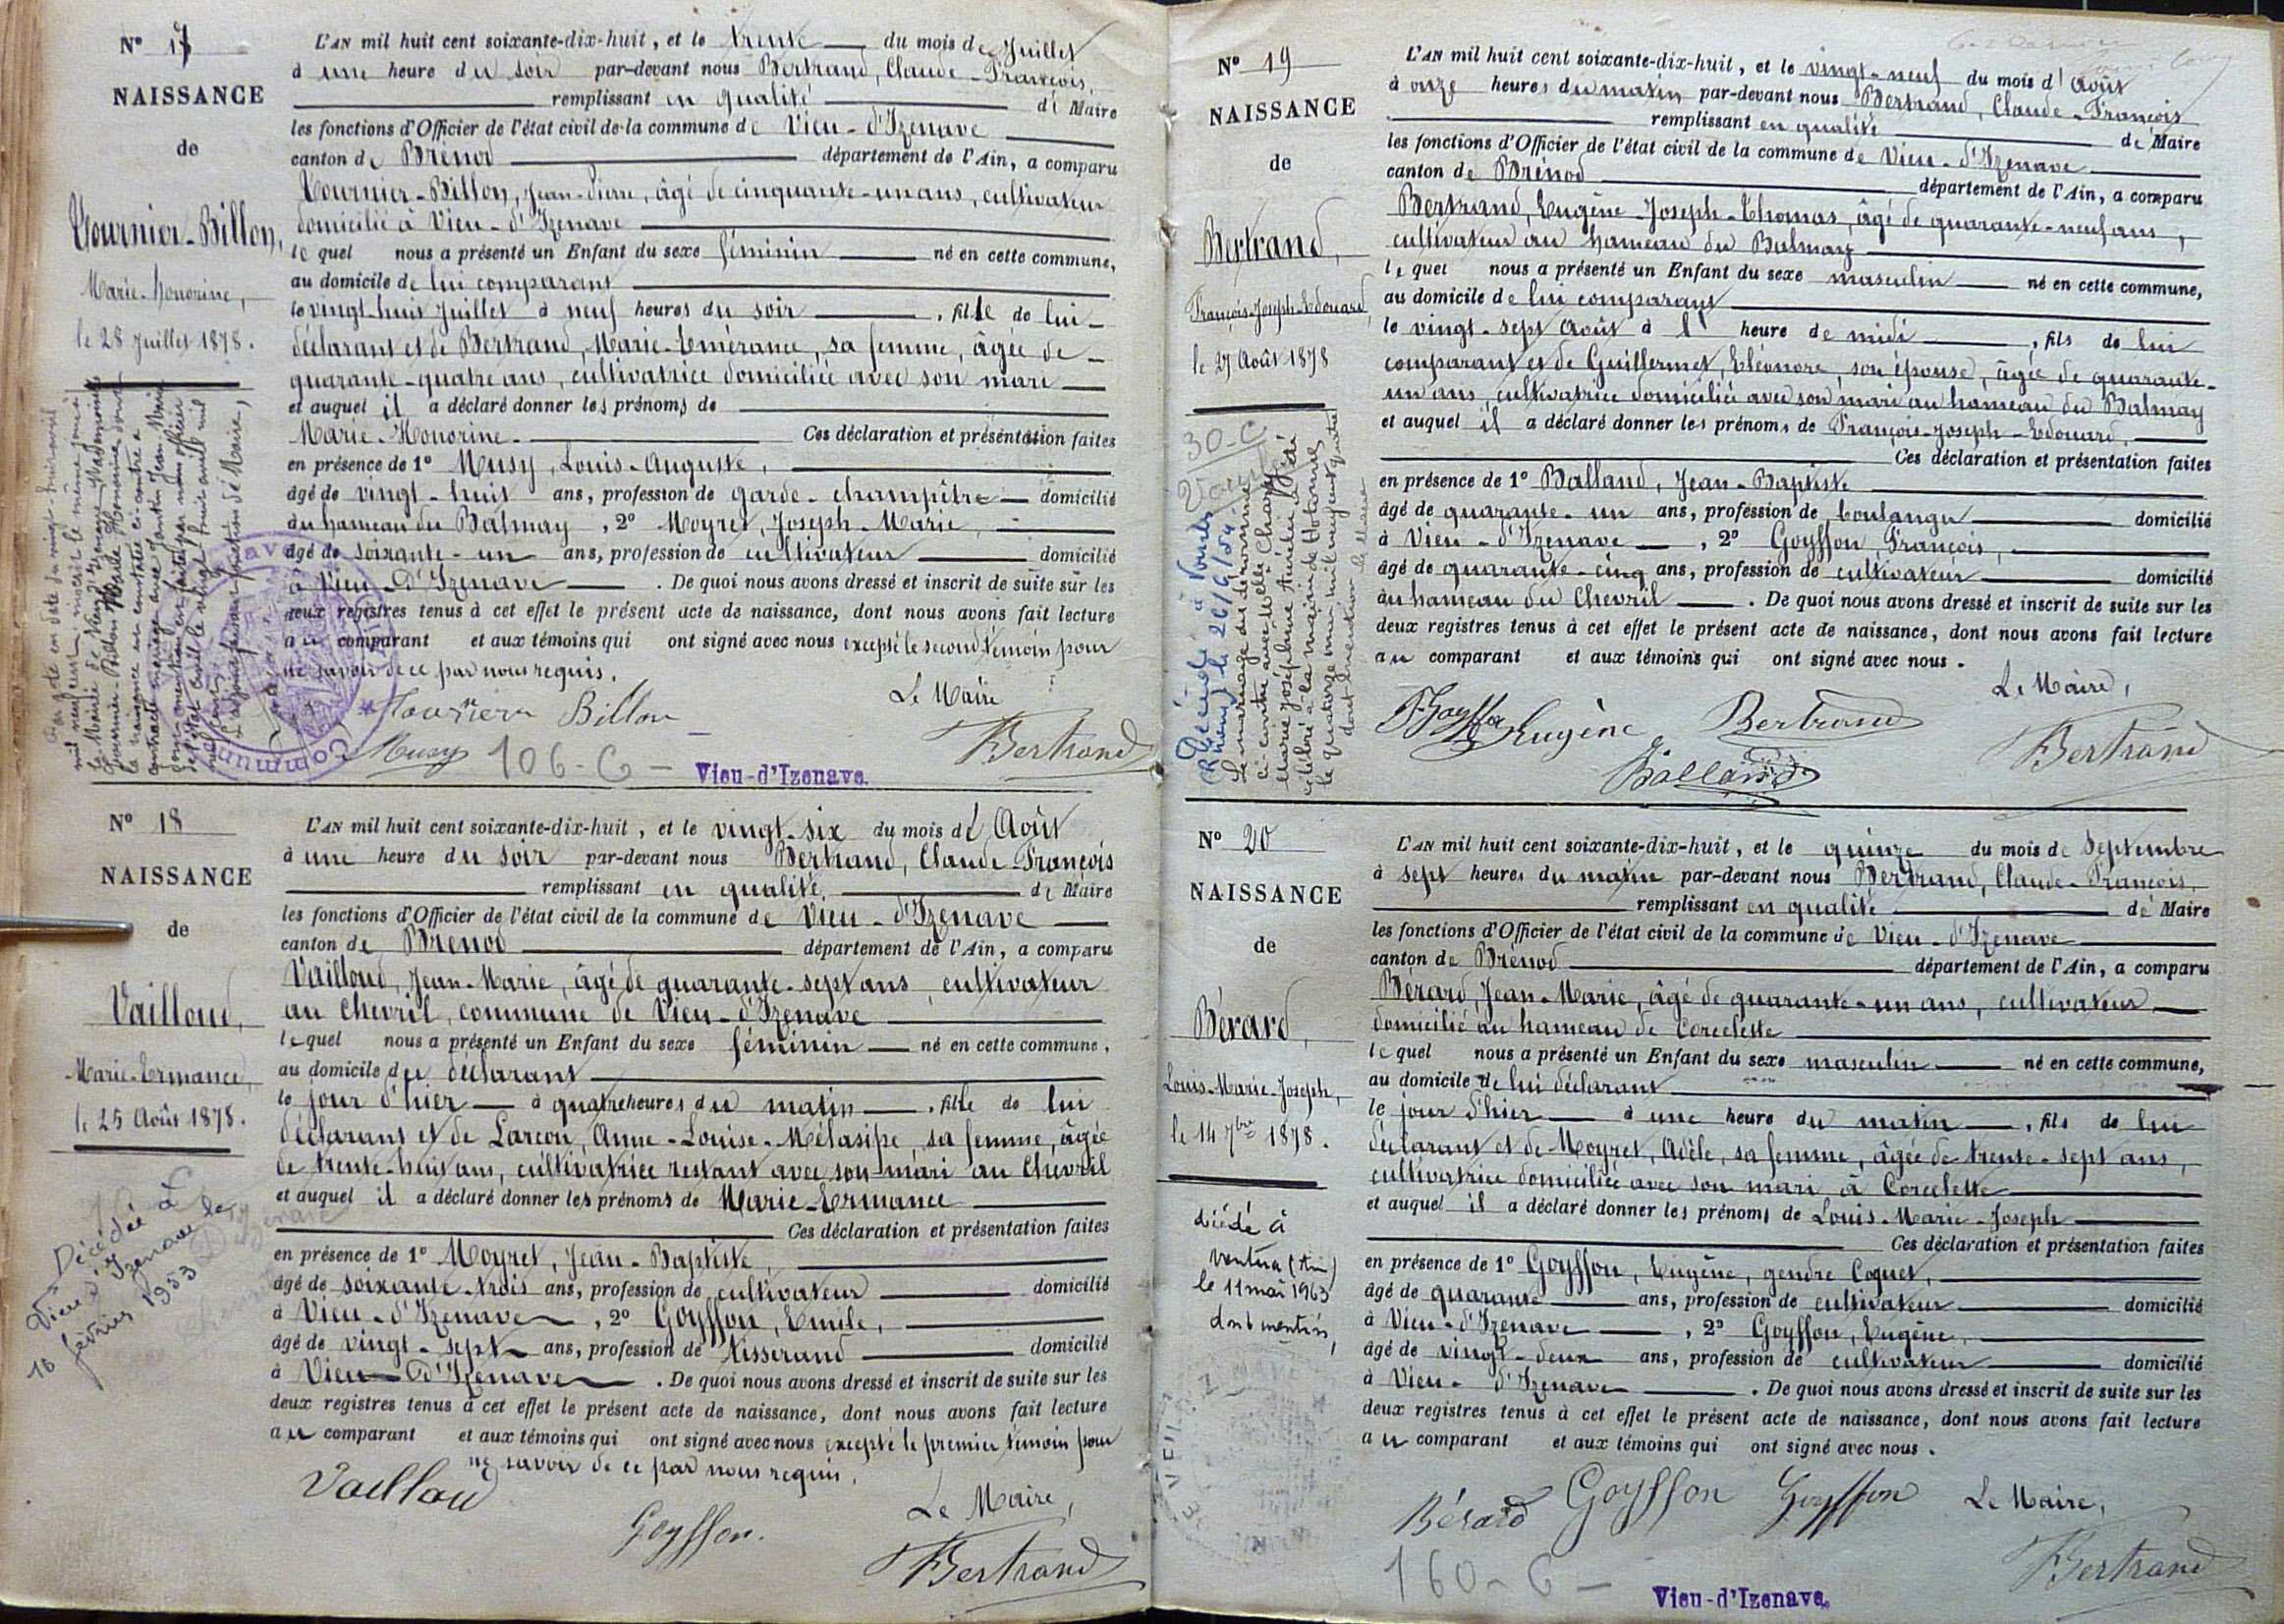 N° 17
NAISSANCE
de
Tournier-Billon,
Marie-Honorine,
le 28 Juillet 1878.
L'AN mil huit cent soixante-dix-huit, et le trente du mois de Juillet
à une heure du soir par-devant nous Bertrand, Claude-François,
remplissant en qualité de Maire
les fonctions d'Officier de l'état civil de la commune de Vieu-d'Izenave
canton de Brénod département de l'Ain, a comparu
Tournier-Billon, Jean-Pierre, âgé de cinquante-un ans, cultivateur
domicilié à Vieu-d'Izenave
lequel nous a présenté un Enfant du sexe féminin né en cette commune,
au domicile de lui comparant
le vingt-huit Juillet à neuf heures du soir, fille de lui
déclarant et de Bertrand, Marie-Emérance, sa femme, âgée de
quarante-quatre ans, cultivatrice domiciliée avec son mari
et auquel il a déclaré donner les prénoms de
Marie-Honorine. Ces déclaration et présentation faites
en présence de 1° Musy, Louis-Auguste,
âgé de vingt-huit ans, profession de garde-champêtre domicilié
au hameau du Balmay, 2° Moyret, Joseph-Marie,
âgé de soixante-un ans, profession de cultivateur domicilié
à Vieu-d'Izenave. De quoi nous avons dressé et inscrit de suite sur les
deux registres tenus à cet effet le présent acte de naissance, dont nous avons fait lecture
au comparant et aux témoins qui ont signé avec nous excepté le second témoin pour
ne savoir de ce par nous requis.
Le Maire
Tournier Billon
Musy
Bertrand
106-C-
Vieu-d'Izenave.
N° 18
NAISSANCE
de
Vailloud,
Marie-Ermance,
le 25 Août 1878.
Décédée à
Vieu d'Izenave le
16 février 1953
L'AN mil huit cent soixante-dix-huit, et le vingt-six du mois d'Août
à une heure du soir par-devant nous Bertrand, Claude-François
remplissant en qualité de Maire
les fonctions d'Officier de l'état civil de la commune de Vieu-d'Izenave
canton de Brénod département de l'Ain, a comparu
Vailloud, Jean-Marie, âgé de quarante-sept ans, cultivateur
au Chevril, commune de Vieu-d'Izenave
lequel nous a présenté un Enfant du sexe féminin né en cette commune,
au domicile du déclarant
le jour d'hier à quatre heures du matin, fille de lui
déclarant et de Larçon, Anne-Louise-Mélasipe, sa femme, âgée
de trente-huit ans, cultivatrice restant avec son mari au Chevril
et auquel il a déclaré donner les prénoms de Marie-Ermance
Ces déclaration et présentation faites
en présence de 1° Moyret, Jean-Baptiste,
âgé de soixante-trois ans, profession de cultivateur domicilié
à Vieu-d'Izenave, 2° Goyffon, Emile,
âgé de vingt-sept ans, profession de tisserand domicilié
à Vieu-d'Izenave. De quoi nous avons dressé et inscrit de suite sur les
deux registres tenus à cet effet le présent acte de naissance, dont nous avons fait lecture
au comparant et aux témoins qui ont signé avec nous excepté le premier témoin pour
ne savoir de ce par nous requis.
Vailloud
Goyffon.
Le Maire,
Bertrand
N° 19
NAISSANCE
de
Bertrand,
François-Joseph-Edouard,
le 27 Août 1878
30-C
Le mariage du dénommé
ci-contre avec Melle Charvet
Marie Joséphine Aurélie a été
célébré à la mairie de Hotonnes
dont mention. Le Maire
L'AN mil huit cent soixante-dix-huit, et le vingt-neuf du mois d'Août
à onze heures du matin par-devant nous Bertrand, Claude-François
remplissant en qualité de Maire
les fonctions d'Officier de l'état civil de la commune de Vieu-d'Izenave
canton de Brénod département de l'Ain, a comparu
Bertrand, Eugène-Joseph-Thomas, âgé de quarante-neuf ans,
cultivateur au hameau du Balmay
lequel nous a présenté un Enfant du sexe masculin né en cette commune,
au domicile de lui comparant
le vingt-sept Août à l' heure de midi, fils de lui
comparant et de Guillermet, Eléonore son épouse, âgée de quarante-
un ans, cultivatrice domiciliée avec son mari au hameau du Balmay
et auquel il a déclaré donner les prénoms de François-Joseph-Edouard,
Ces déclaration et présentation faites
en présence de 1° Balland, Jean-Baptiste
âgé de quarante-un ans, profession de boulanger domicilié
à Vieu-d'Izenave, 2° Goyffon, François,
âgé de quarante-cinq ans, profession de cultivateur domicilié
au hameau du Chevril. De quoi nous avons dressé et inscrit de suite sur les
deux registres tenus à cet effet le présent acte de naissance, dont nous avons fait lecture
au comparant et aux témoins qui ont signé avec nous.
Le Maire,
F. Goyffon Eugène Bertrand
Balland
Bertrand
N° 20
NAISSANCE
de
Bérard,
Louis-Marie-Joseph,
le 14 7bre 1878.
décédé à
(Ain)
le 11 mai 1963
dont mention,
L'AN mil huit cent soixante-dix-huit, et le quinze du mois de Septembre
à sept heures du matin par-devant nous Bertrand, Claude-François,
remplissant en qualité de Maire
les fonctions d'Officier de l'état civil de la commune de Vieu-d'Izenave
canton de Brénod département de l'Ain, a comparu
Bérard, Jean-Marie, âgé de quarante-un ans, cultivateur
domicilié au hameau de Corcelette
lequel nous a présenté un Enfant du sexe masculin né en cette commune,
au domicile de lui déclarant
le jour d'hier à une heure du matin, fils de lui
déclarant et de Moyret, Adèle, sa femme, âgée de trente-sept ans,
cultivatrice domiciliée avec son mari à Corcelette
et auquel il a déclaré donner les prénoms de Louis-Marie-Joseph
Ces déclaration et présentation faites
en présence de 1° Goyffon, Eugène, gendre Coquet,
âgé de quarante ans, profession de cultivateur domicilié
à Vieu-d'Izenave, 2° Goyffon, Eugène,
âgé de vingt-deux ans, profession de cultivateur domicilié
à Vieu-d'Izenave. De quoi nous avons dressé et inscrit de suite sur les
deux registres tenus à cet effet le présent acte de naissance, dont nous avons fait lecture
au comparant et aux témoins qui ont signé avec nous.
Bérard Goyffon Goyffon Le Maire,
Bertrand
160-C-
Vieu-d'Izenave.